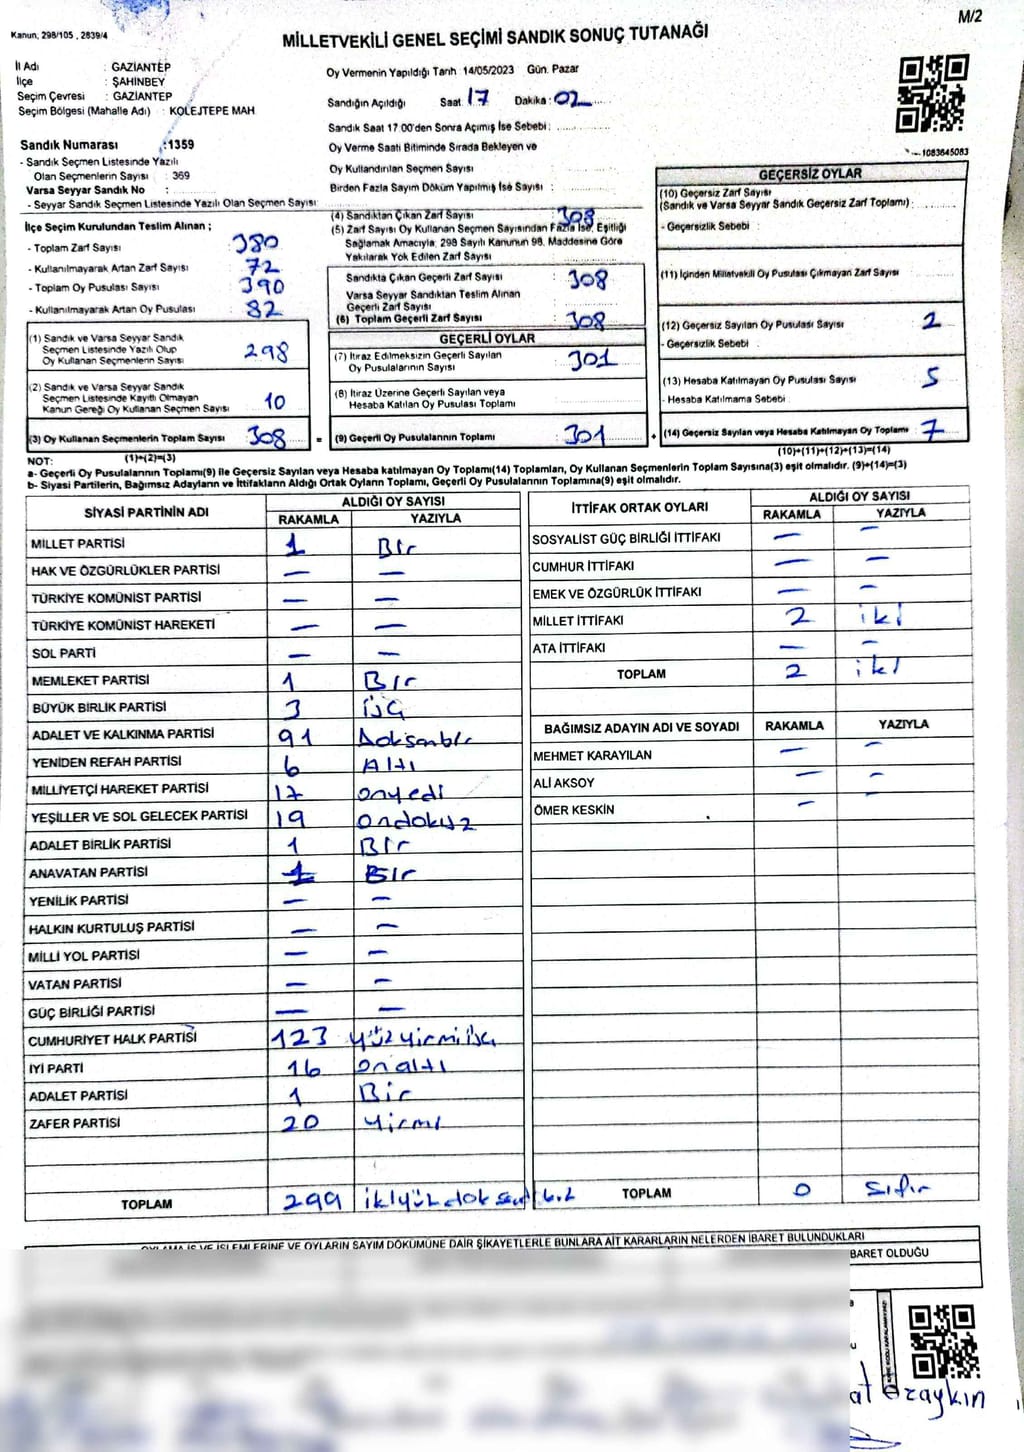 M/2
Kanun, 298/105 , 2839/4
MİLLETVEKİLİ GENEL SEÇİMİ SANDIK SONUÇ TUTANAĞI
İl Adı : GAZİANTEP
İlçe : ŞAHİNBEY
Seçim Çevresi : GAZİANTEP
Seçim Bölgesi (Mahalle Adı) : KOLEJTEPE MAH
Sandık Numarası : 1359
- Sandık Seçmen Listesinde Yazılı
Olan Seçmenlerin Sayısı : 369
Varsa Seyyar Sandık No :
- Seyyar Sandık Seçmen Listesinde Yazılı Olan Seçmen Sayısı:
Oy Vermenin Yapıldığı Tarih 14/05/2023 Gün. Pazar
Sandığın Açıldığı Saat 17 Dakika : 02
Sandık Saat 17.00'den Sonra Açımış İse Sebebi :
Oy Verme Saati Bitiminde Sırada Bekleyen ve
Oy Kullandırılan Seçmen Sayısı
Birden Fazla Sayım Döküm Yapılmış İse Sayısı :
1083645083
İlçe Seçim Kurulundan Teslim Alınan ;
- Toplam Zarf Sayısı 380
- Kullanılmayarak Artan Zarf Sayısı 72
- Toplam Oy Pusulası Sayısı 390
- Kullanılmayarak Artan Oy Pusulası 82
(1) Sandık ve Varsa Seyyar Sandık
Seçmen Listesinde Yazılı Olup
Oy Kullanan Seçmenlerin Sayısı 298
(2) Sandık ve Varsa Seyyar Sandık
Seçmen Listesinde Kayıtlı Olmayan
Kanun Gereği Oy Kullanan Seçmen Sayısı 10
(3) Oy Kullanan Seçmenlerin Toplam Sayısı 308 =
(1)+(2)=(3)
(4) Sandıktan Çıkan Zarf Sayısı 308
(5) Zarf Sayısı Oy Kullanan Seçmen Sayısından Fazla İse, Eşitliği
Sağlamak Amacıyla, 298 Sayılı Kanunun 98. Maddesine Göre
Yakılarak Yok Edilen Zarf Sayısı
Sandıkta Çıkan Geçerli Zarf Sayısı 308
Varsa Seyyar Sandıktan Teslim Alınan
Geçerli Zarf Sayısı
(6) Toplam Geçerli Zarf Sayısı 308
GEÇERLİ OYLAR
(7) İtiraz Edilmeksizin Geçerli Sayılan
Oy Pusulalarının Sayısı 301
(8) İtiraz Üzerine Geçerli Sayılan veya
Hesaba Katılan Oy Pusulası Toplamı
(9) Geçerli Oy Pusulalarının Toplamı 301 +
GEÇERSİZ OYLAR
(10) Geçersiz Zarf Sayısı
(Sandık ve Varsa Seyyar Sandık Geçersiz Zarf Toplamı) :
- Geçersizlik Sebebi :
(11) İçinden Milletvekili Oy Pusulası Çıkmayan Zarf Sayısı
(12) Geçersiz Sayılan Oy Pusulası Sayısı 2
- Geçersizlik Sebebi :
(13) Hesaba Katılmayan Oy Pusulası Sayısı 5
- Hesaba Katılmama Sebebi
(14) Geçersiz Sayılan veya Hesaba Katılmayan Oy Toplamı 7
(10)+(11)+(12)+(13)=(14)
NOT:
a- Geçerli Oy Pusulalarının Toplamı(9) ile Geçersiz Sayılan veya Hesaba katılmayan Oy Toplamı(14) Toplamları, Oy Kullanan Seçmenlerin Toplam Sayısına(3) eşit olmalıdır. (9)+(14)=(3)
b- Siyasi Partilerin, Bağımsız Adayların ve İttifakların Aldığı Ortak Oyların Toplamı, Geçerli Oy Pusulalarının Toplamına(9) eşit olmalıdır.
SİYASİ PARTİNİN ADI ALDIĞI OY SAYISI
RAKAMLA YAZIYLA
MİLLET PARTİSİ 1 Bir
HAK VE ÖZGÜRLÜKLER PARTİSİ — —
TÜRKİYE KOMÜNİST PARTİSİ — —
TÜRKİYE KOMÜNİST HAREKETİ — —
SOL PARTİ — —
MEMLEKET PARTİSİ 1 Bir
BÜYÜK BİRLİK PARTİSİ 3 üç
ADALET VE KALKINMA PARTİSİ 91 Doksanbir
YENİDEN REFAH PARTİSİ 6 Altı
MİLLİYETÇİ HAREKET PARTİSİ 17 onyedi
YEŞİLLER VE SOL GELECEK PARTİSİ 19 ondokuz
ADALET BİRLİK PARTİSİ 1 Bir
ANAVATAN PARTİSİ 1 Bir
YENİLİK PARTİSİ — —
HALKIN KURTULUŞ PARTİSİ — —
MİLLİ YOL PARTİSİ — —
VATAN PARTİSİ — —
GÜÇ BİRLİĞİ PARTİSİ — —
CUMHURİYET HALK PARTİSİ 123 yüzyirmiüç
İYİ PARTİ 16 onaltı
ADALET PARTİSİ 1 Bir
ZAFER PARTİSİ 20 yirmi
TOPLAM 299
İTTİFAK ORTAK OYLARI ALDIĞI OY SAYISI
RAKAMLA YAZIYLA
SOSYALİST GÜÇ BİRLİĞİ İTTİFAKI — —
CUMHUR İTTİFAKI — —
EMEK VE ÖZGÜRLÜK İTTİFAKI — —
MİLLET İTTİFAKI 2 iki
ATA İTTİFAKI — —
TOPLAM 2 iki
BAĞIMSIZ ADAYIN ADI VE SOYADI RAKAMLA YAZIYLA
MEHMET KARAYILAN — —
ALİ AKSOY — —
ÖMER KESKİN — —
TOPLAM 0 sıfır
OYLAMA İŞ VE İŞLEMLERİNE VE OYLARIN SAYIM DÖKÜMÜNE DAİR ŞİKAYETLERLE BUNLARA AİT KARARLARIN NELERDEN İBARET BULUNDUKLARI
BARET OLDUĞU